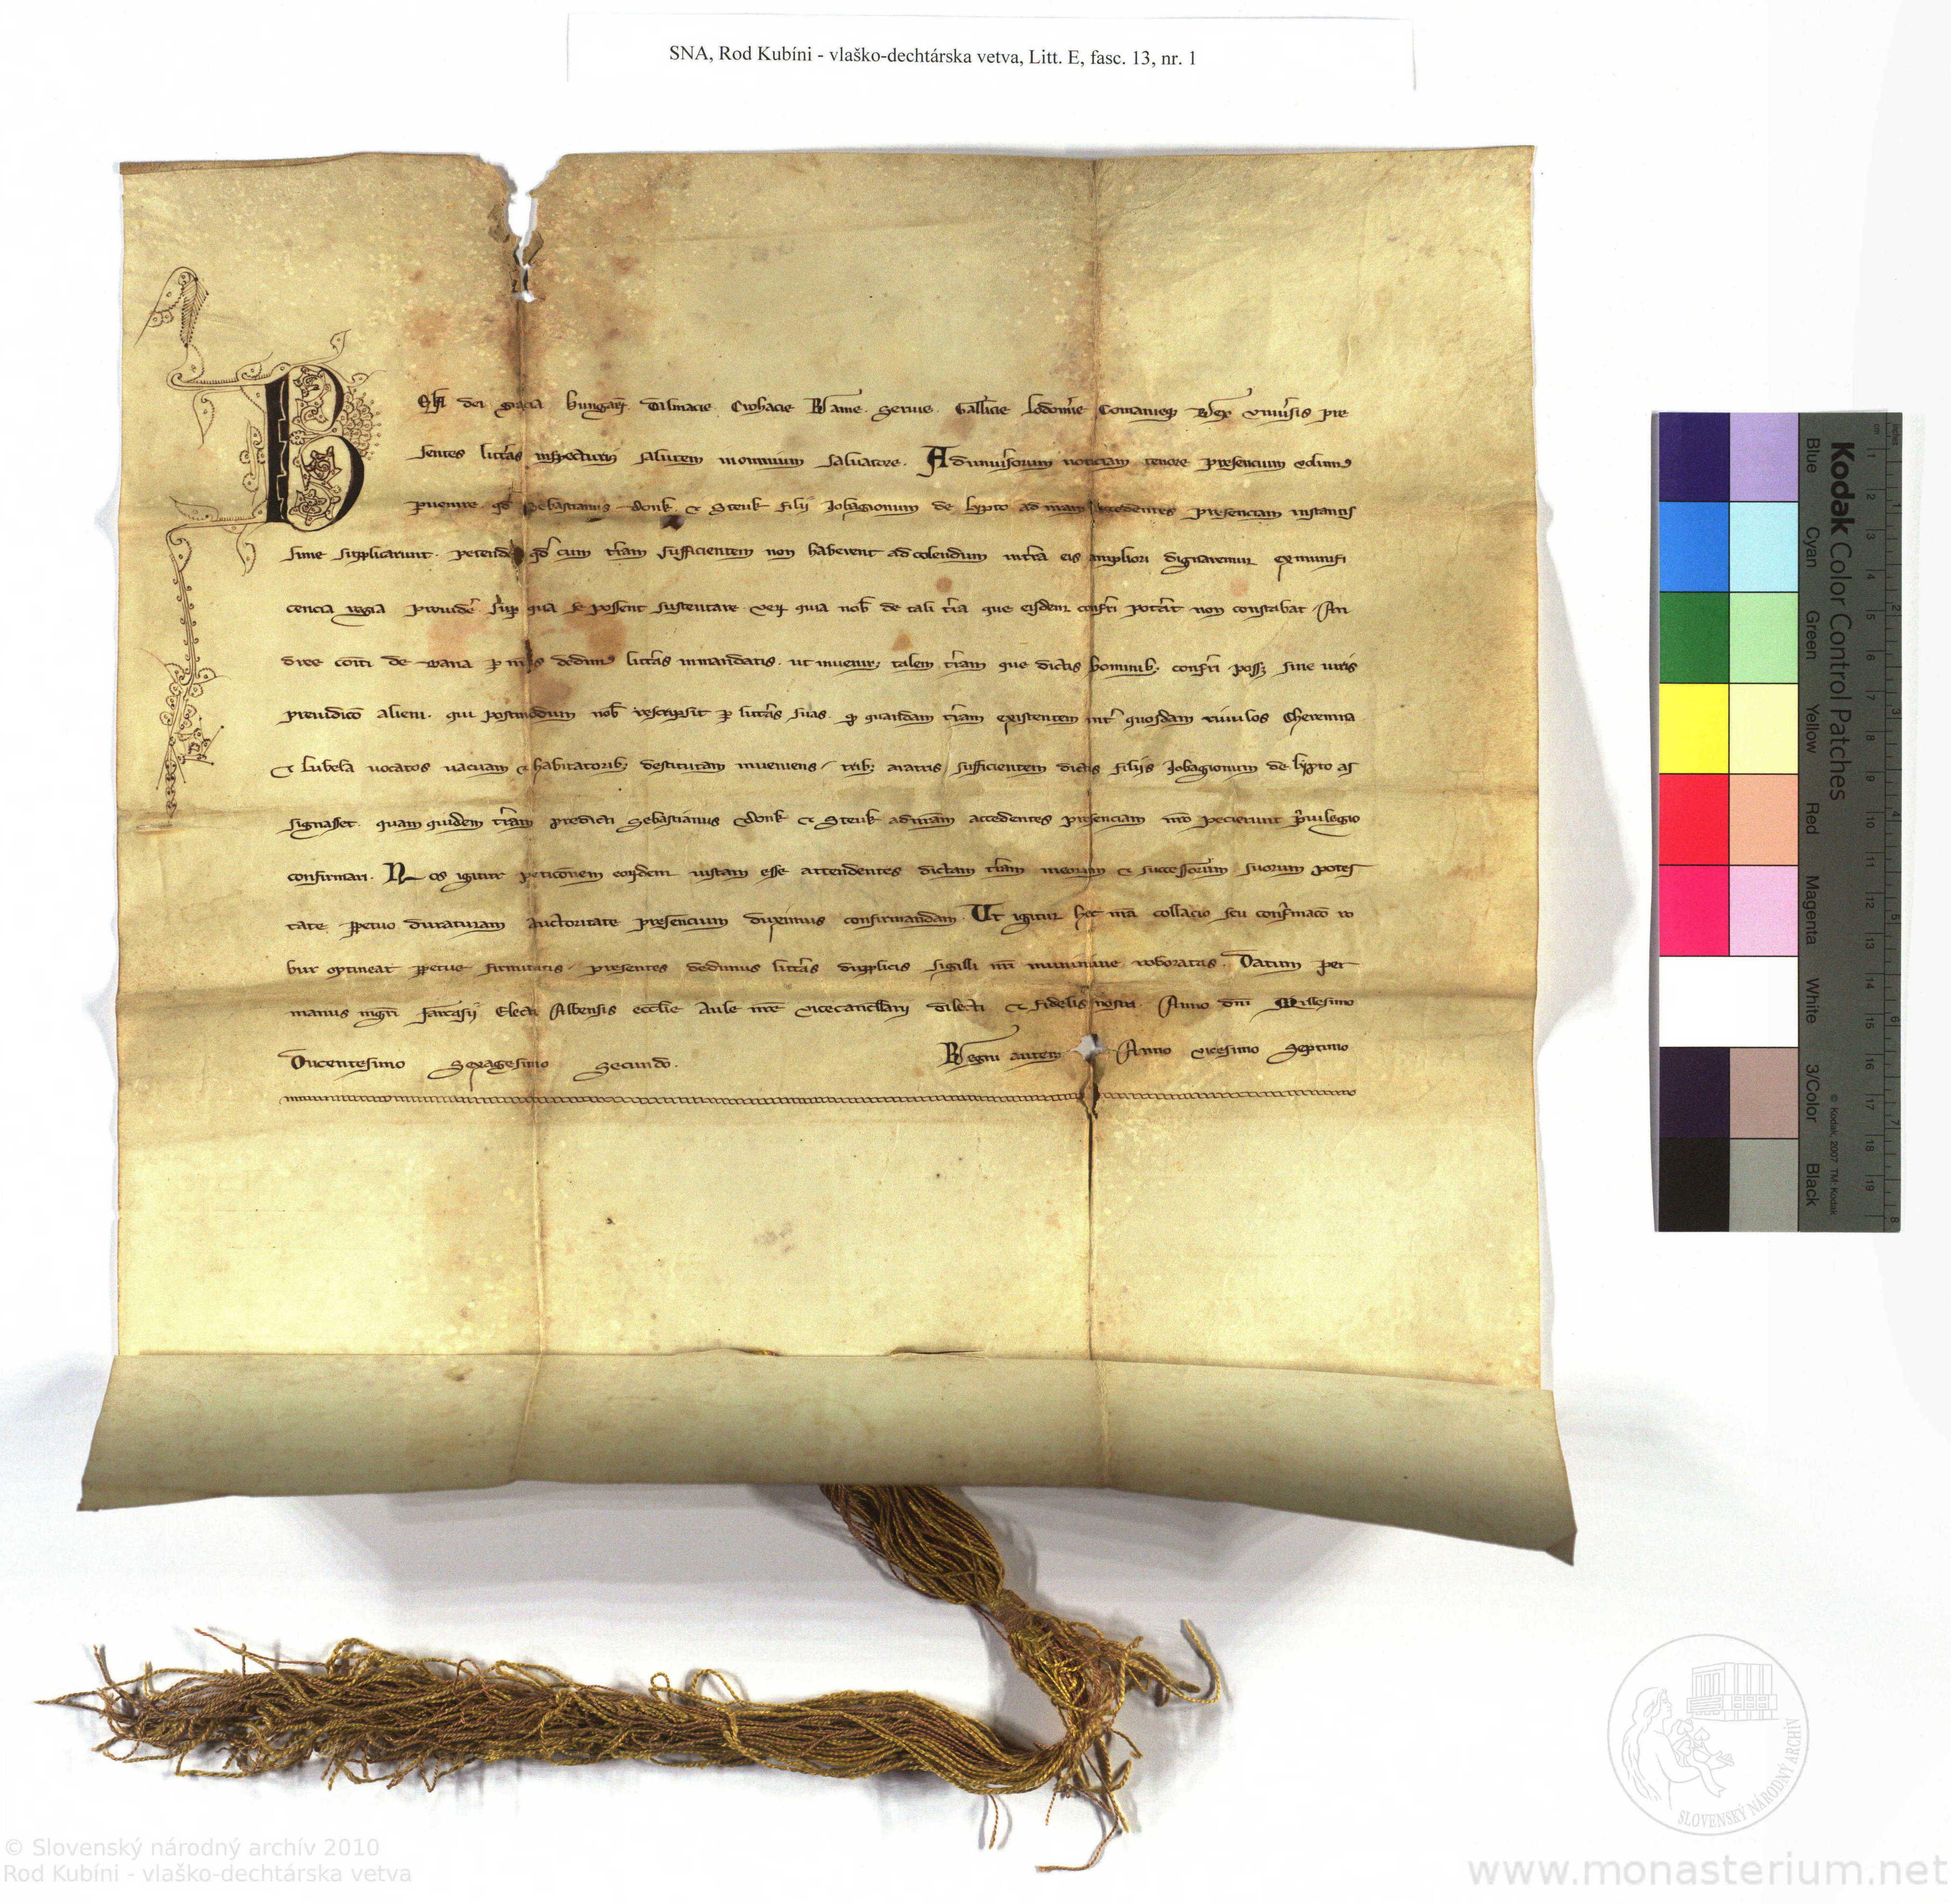 SNA, Rod Kubíni - vlaško-dechtárska vetva, Litt. E, fasc. 13, nr. 1
BEla dei gracia hungarie. Dalmacie. Crohacie Rame. Seruie. Gallicie Lodomerie Comanieque Rex vniuersis pre
sentes litteras inspecturis salutem in omnium saluatore. Ad vniuersorum noticiam tenore presencium volumus
peruenire quod Sebastianus Donk. et Steuk filij Jobagionum de lypto ad nostram accedentes presenciam instantis
sime supplicarunt. petendo quod cum terram sufficientem non haberent ad colendum in terra eis ampliori dignaremur ex munifi
cencia regia prouidere super qua se possent sustentare. Verum quia nobis de tali terra que eisdem conferri poterit non constabat An
dree comiti de dedimus litteras in mandatis. ut inueniret talem terram que dictis hominibus conferri posset sine iuris
preiudicio alieni. qui postmodum nobis rescripsit per litteras suas. quod quandam terram existentem inter quosdam riuulos Cheremna
et Lubela vocatos vacuam et habitatoribus destitutam inueniens, tribus aratris sufficientem dictis filijs Jobagionum de lypto as
signasset. quam quidem terram predicti Sebastianus Donk et Steuk ad nostram accedentes presenciam nostro pecierunt priuilegio
confirmari. Nos igitur peticionem eorundem iustam esse attendentes dictam terram ipsorum et successorum suorum potes
tate perpetuo duraturam auctoritate presencium duximus confirmandam. Ut igitur hec nostra collacio seu confirmacio ro
bur optineat perpetue firmitatis, presentes dedimus litteras dupplicis sigilli nostri munimine roboratas. Datum per
manus magistri farcasij Electi Albensis ecclesie aule nostre vicecancellarij dilecti et fidelis nostri. Anno domini Millesimo
Ducentesimo Sexagesimo Secundo. Regni autem Anno vicesimo Septimo
Kodak Color Control Patches
Blue Cyan Green Yellow Red Magenta White 3/Color Black
© Kodak, 2007 TM: Kodak
SLOVENSKÝ NÁRODNÝ ARCHÍV
© Slovenský národný archív 2010
Rod Kubíni - vlaško-dechtárska vetva
www.monasterium.net